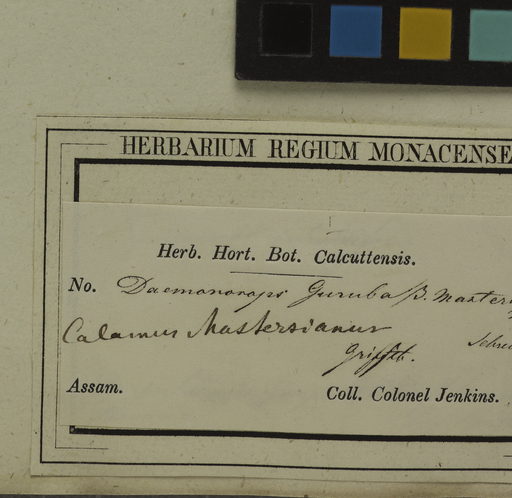 HERBARIUM REGIUM MONACENSE
Herb. Hort. Bot. Calcuttensis.
No. Daemonorops Guruba β. Masters
Calamus Mastersianus
Griffth.
Assam. Coll. Colonel Jenkins.